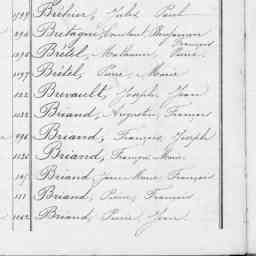 Bréhier, Jules Paul
Bretagne, Constant Benjamin
François
Brétel, Mathurin, Pierre
Brétel, Pierre, Marie
122 Brevault, Joseph Jean
Briand, Augustin, François
996 Briand, François, Joseph
Briand, François Marie
Briand, Jean Marie François
111 Briand, Pierre, François
Briand, Pierre, Jean